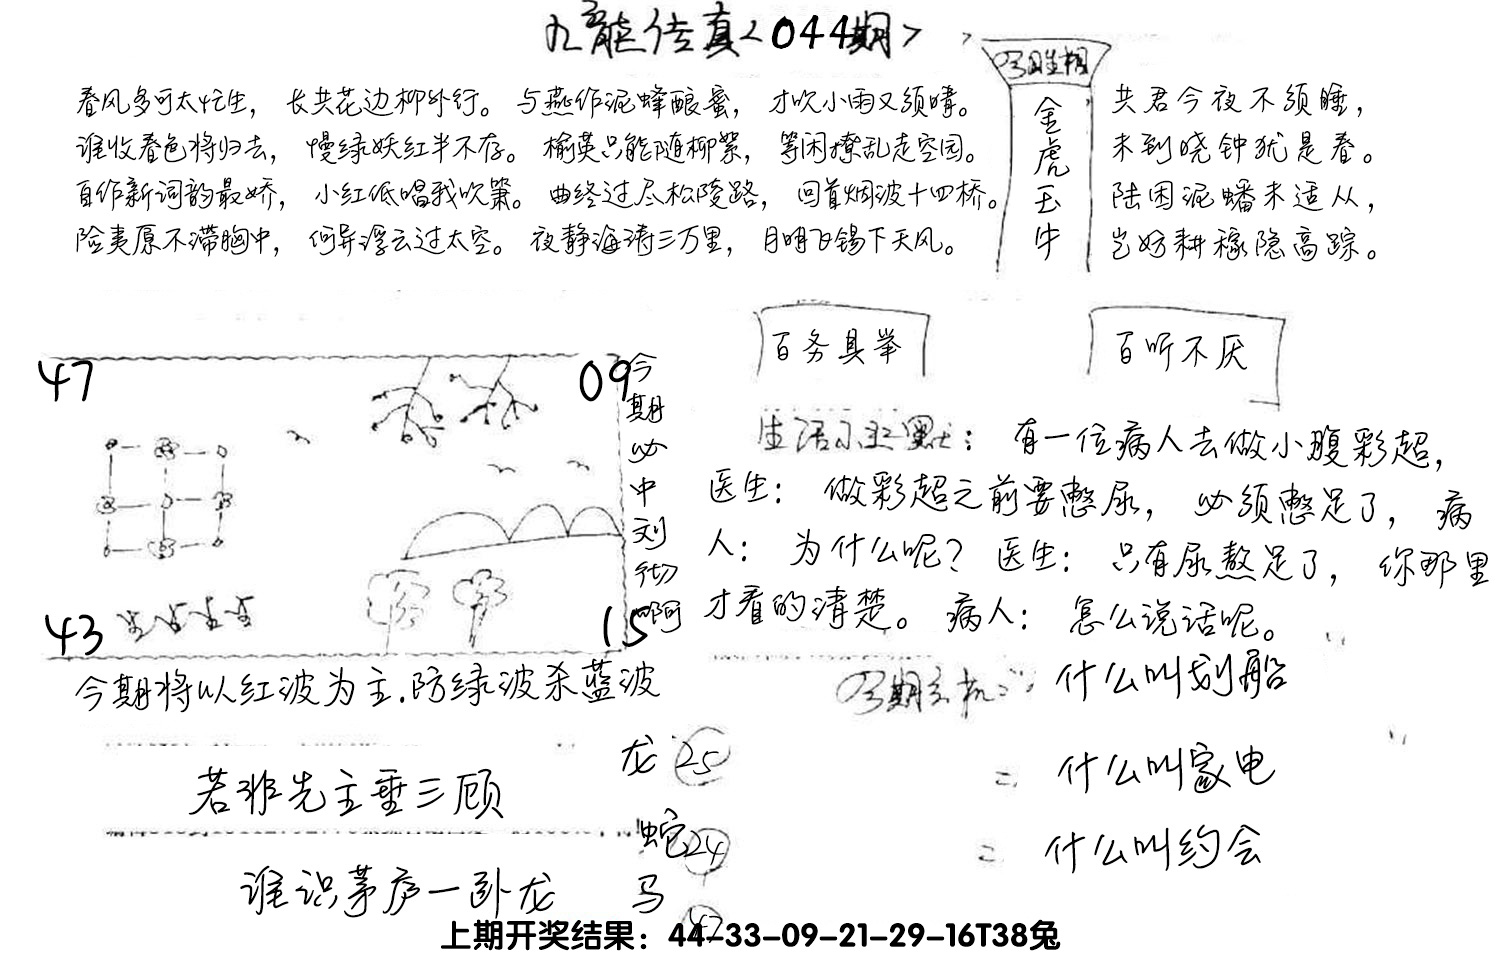 九龙传真<044期>
春风多可太忙生，长共花边柳外行。与燕作泥蜂酿蜜，才吹小雨又须晴。
谁收春色将归去，慢绿妖红半不存。榆荚只能随柳絮，等闲撩乱走空园。
自作新词韵最娇，小红低唱我吹箫。曲终过尽松陵路，回首烟波十四桥。
险夷原不滞胸中，何异浮云过太空。夜静海涛三万里，月明飞锡下天风。
金虎玉牛
共君今夜不须睡，
未到晓钟犹是春。
陆困泥蟠未适从，
岂妨耕稼隐高踪。
47
09
43
15
今期必中刘彻啊
百务具举
百听不厌
生活小幽默：有一位病人去做小腹彩超，
医生：做彩超之前要憋尿，必须憋足了，病
人：为什么呢？医生：只有尿熬足了，你那里
才看的清楚。病人：怎么说话呢。
今期将以红波为主.防绿波杀蓝波
什么叫划船
什么叫家电
什么叫约会
若非先主垂三顾
谁识茅庐一卧龙
龙 25
蛇 24
马 47
上期开奖结果：44-33-09-21-29-16T38兔